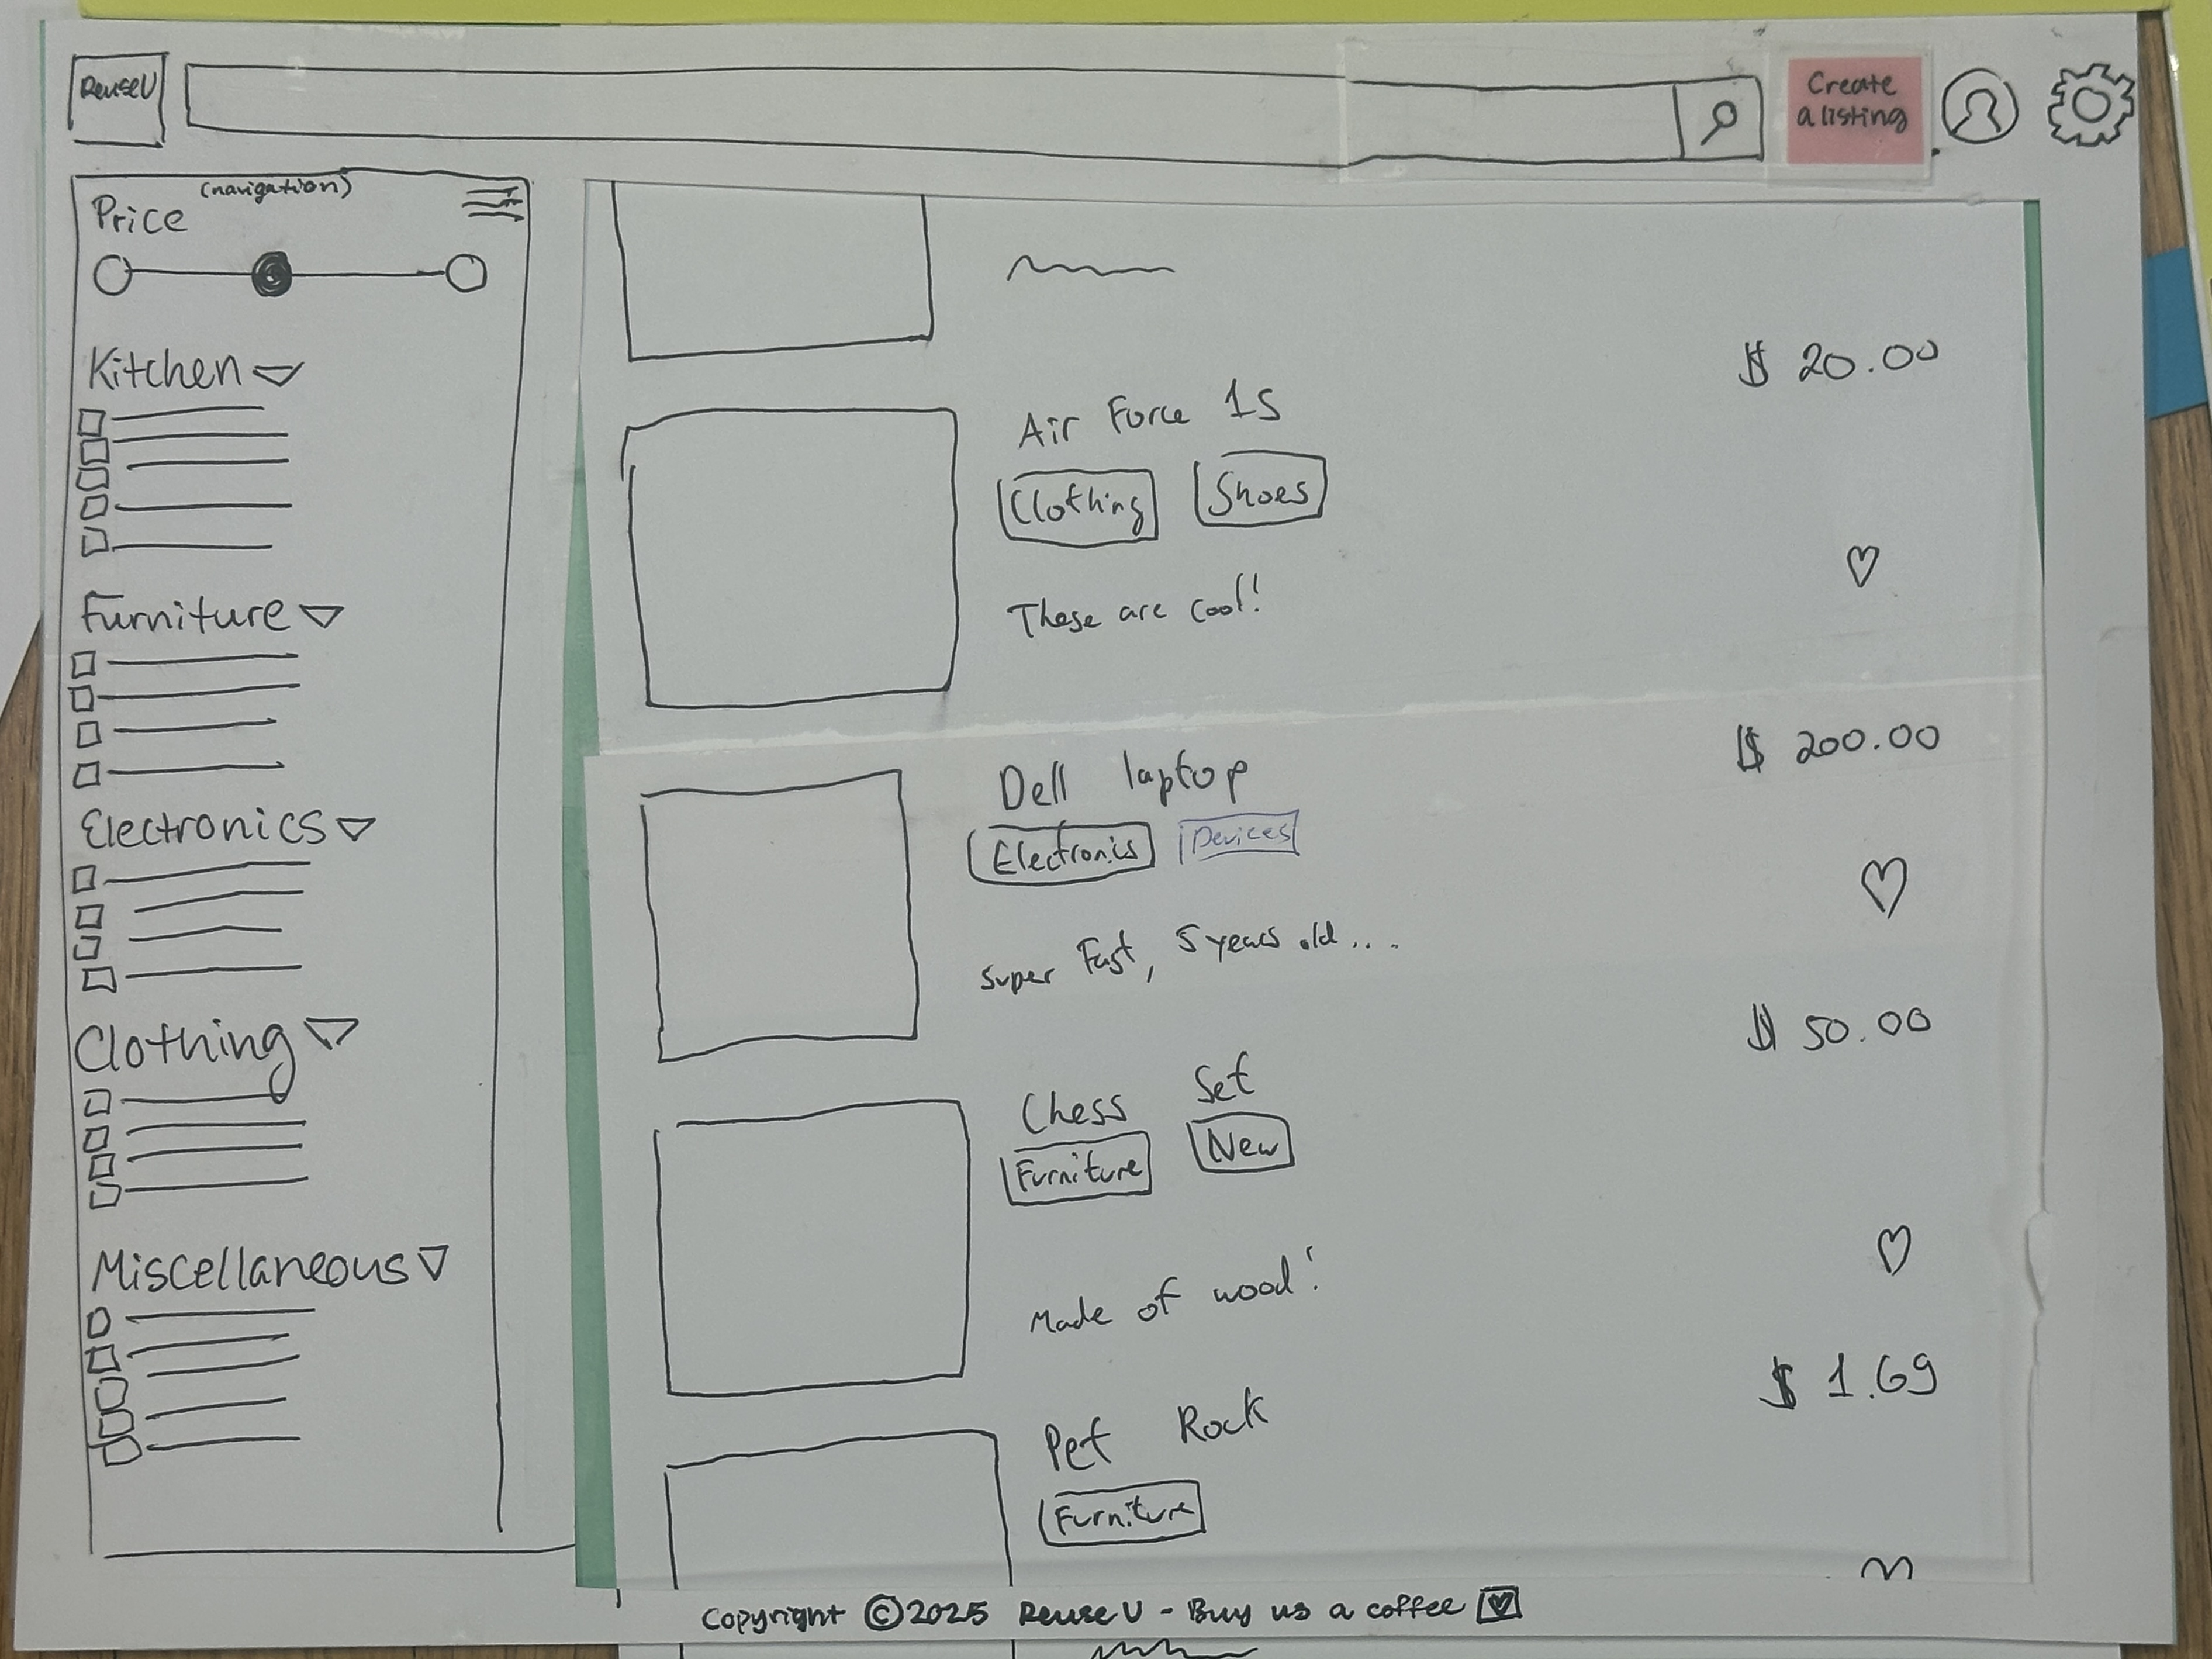 ReuseU
Create
a listing
(navigation)
Price
Kitchen
Furniture
Electronics
Clothing
Miscellaneous
$ 20.00
Air Force 1s
Clothing Shoes
These are cool!
$ 200.00
Dell laptop
Electronics Devices
super Fast, 5 years old....
$ 50.00
Chess Set
Furniture New
Made of wood!
$ 1.69
Pet Rock
Furniture
Copyright ©2025 ReuseU - Buy us a coffee